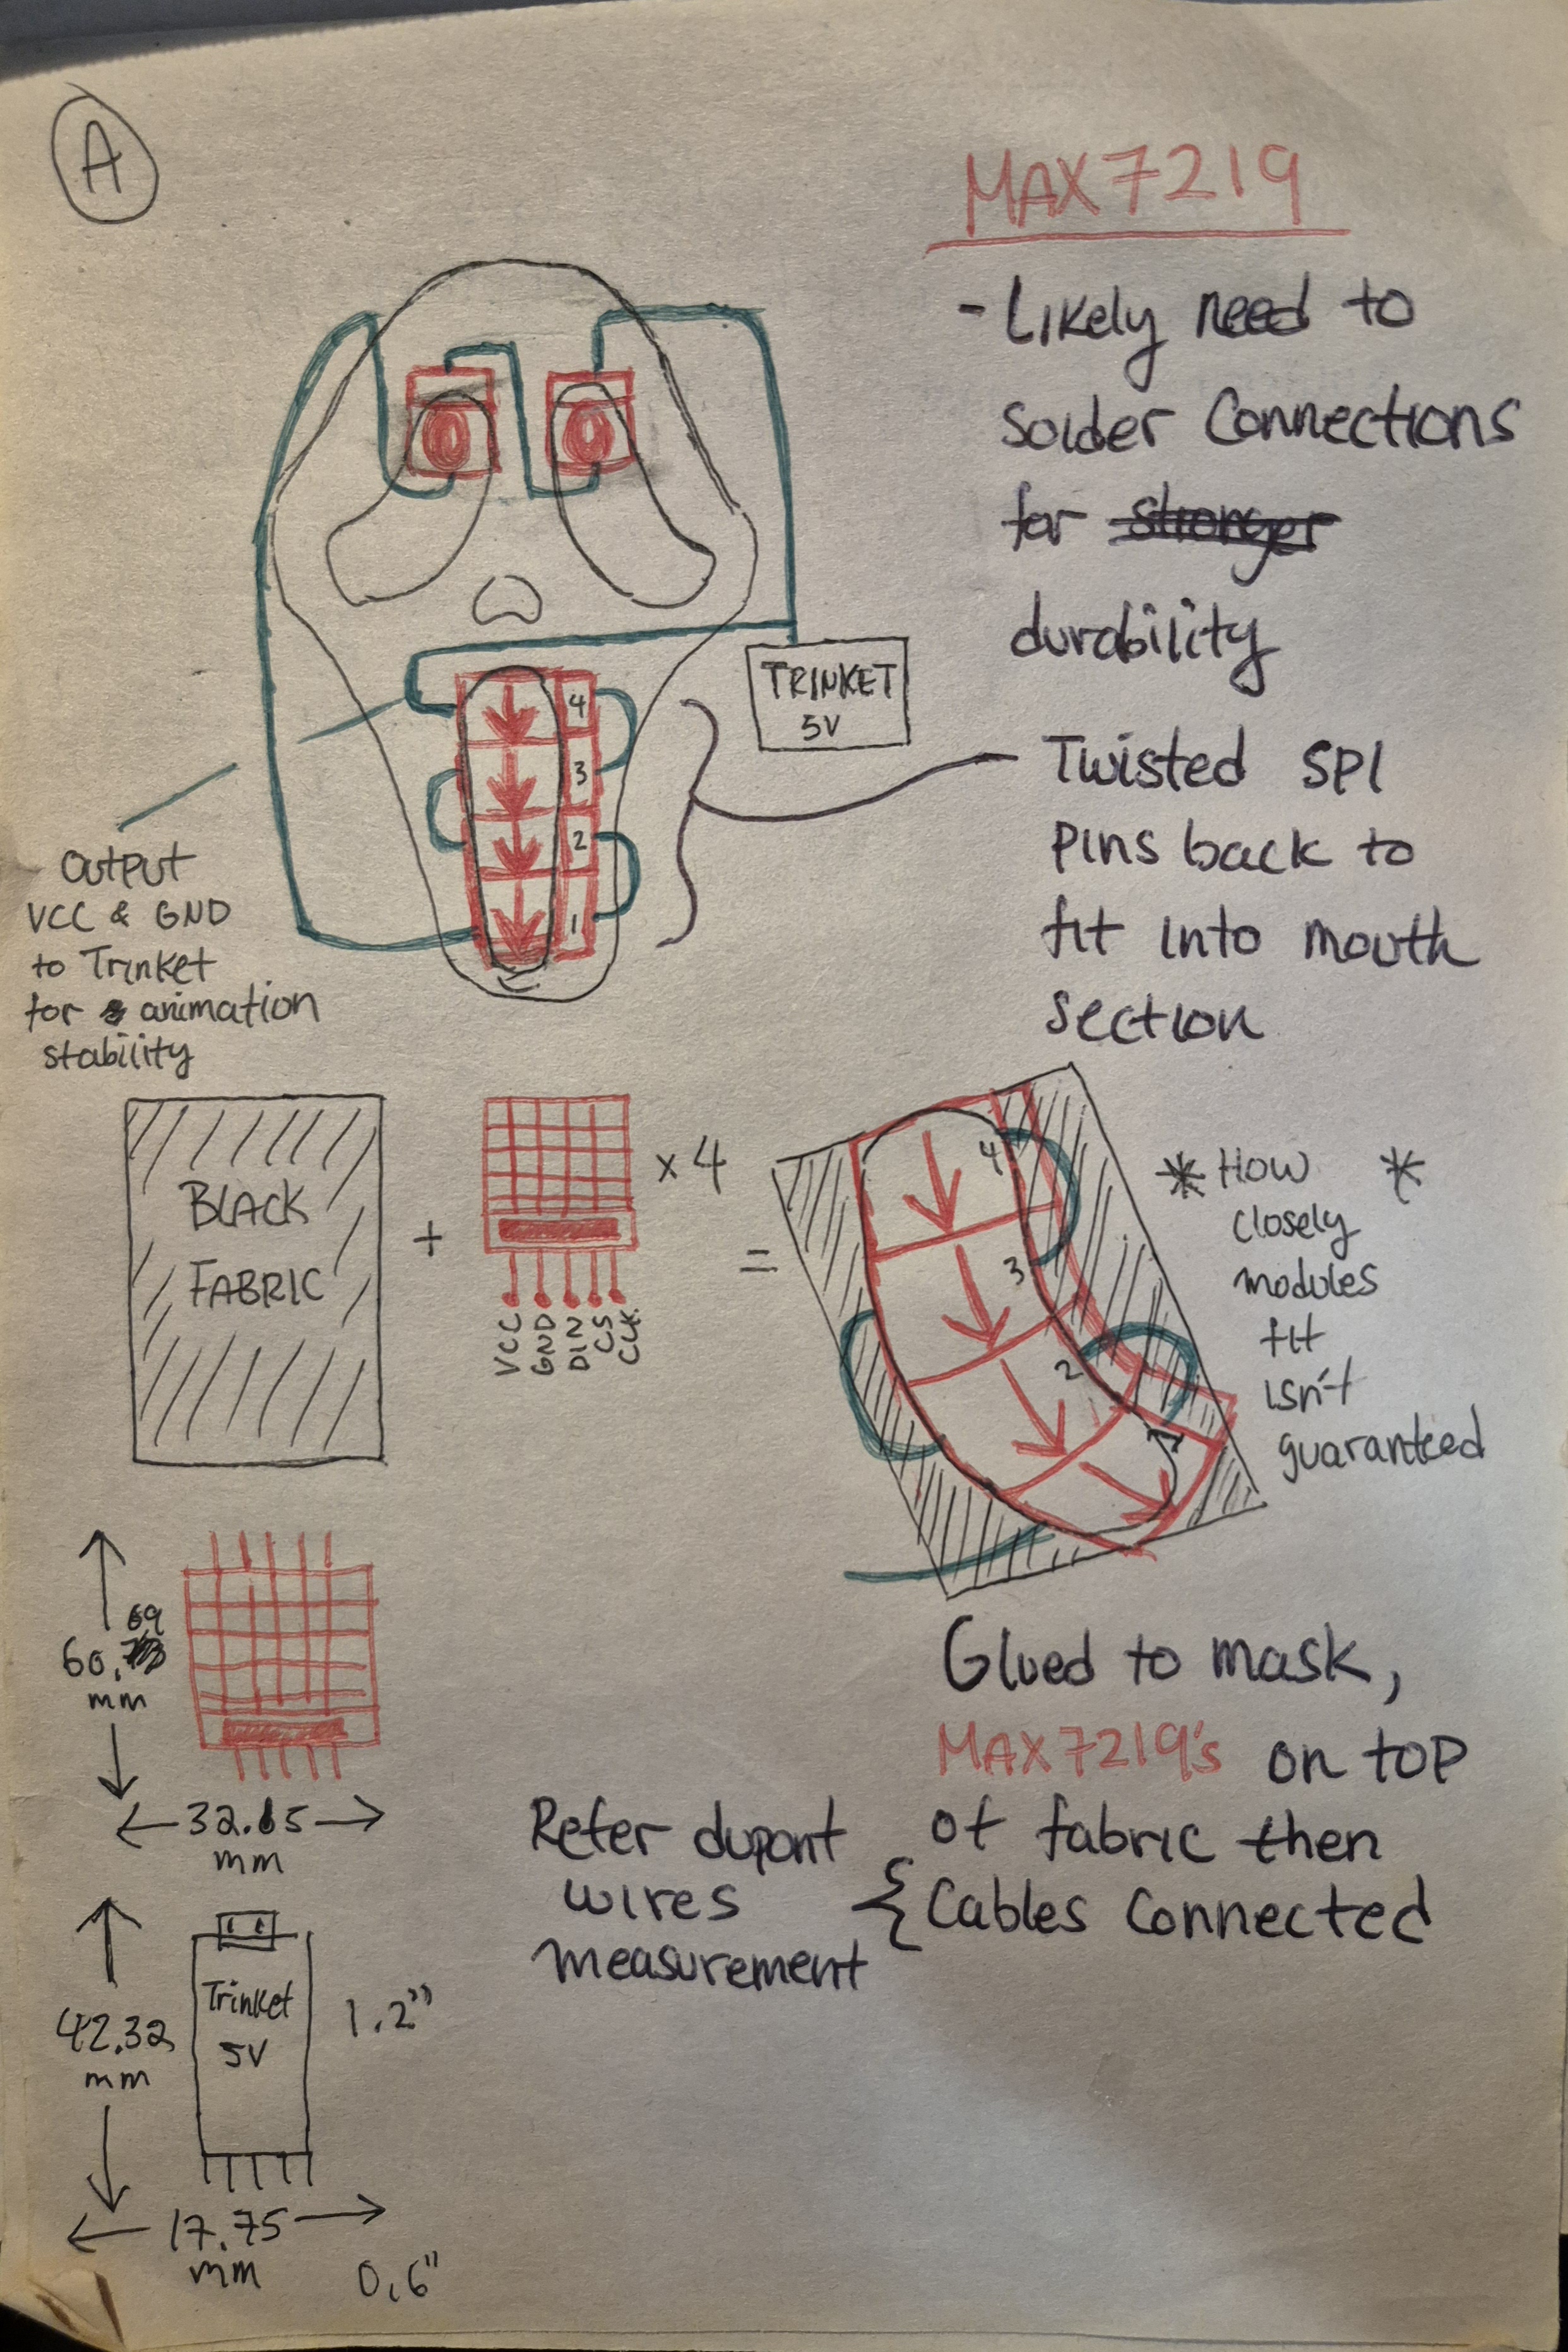 A
MAX7219
- Likely need to
solder connections
for stronger
durability
TRINKET
5V
4
3
2
1
Twisted SPI
pins back to
fit into mouth
section
Output
VCC & GND
to Trinket
for animation
stability
BLACK
FABRIC
+
x4
VCC
GND
DIN
CS
CLK
=
4
3
2
1
* How *
closely
modules
fit
isn't
guaranteed
60.69
mm
32.15
mm
Glued to mask,
MAX7219's on top
of fabric then
{ Cables connected
Refer dupont
wires
measurement
Trinket
5V
1.2"
42.32
mm
17.75
mm
0.6"